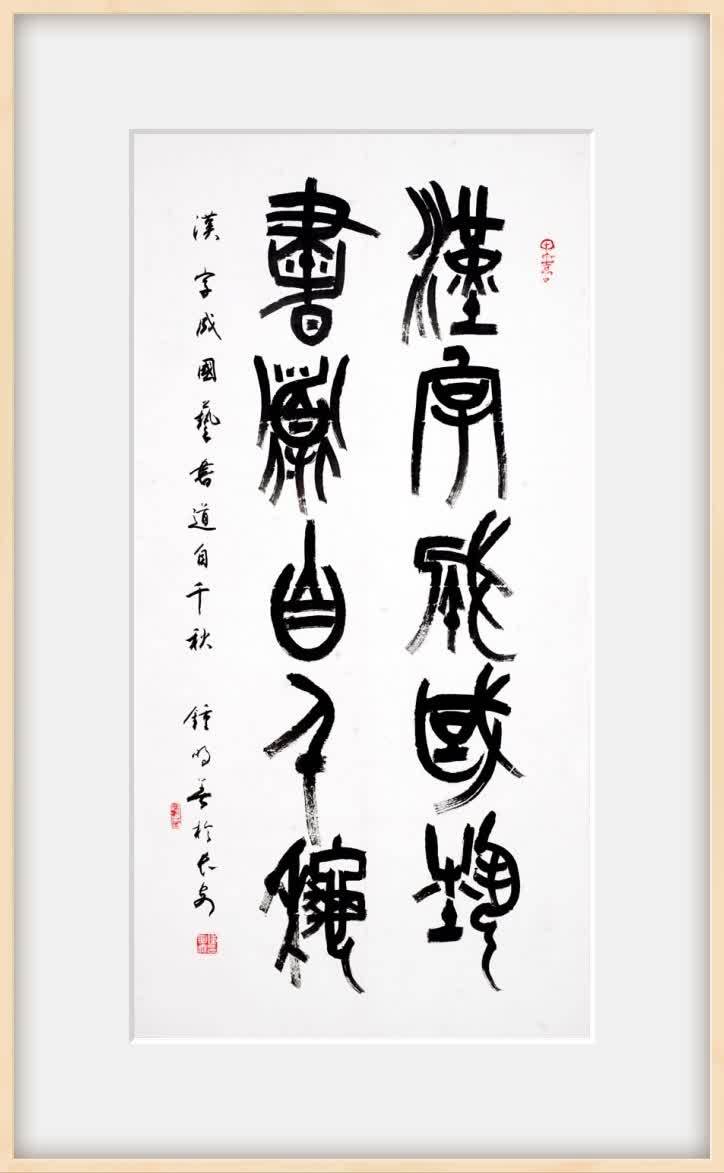 漢字成國藝
書道自千秋
漢字成國藝書道自千秋 鍾明善於長安